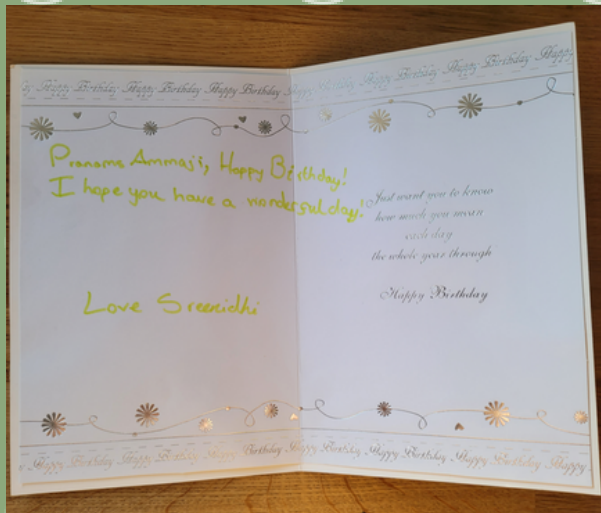 Happy Birthday Happy Birthday Happy Birthday Happy Birthday Happy Birthday Happy Birthday Happy
Pranams Ammaji, Happy Birthday!
I hope you have a wonderful day!
Love Sreenidhi
Just want you to know
how much you mean
each day
the whole year through
Happy Birthday
Happy Birthday Happy Birthday Happy Birthday Happy Birthday Happy Birthday Happy Birthday Happy